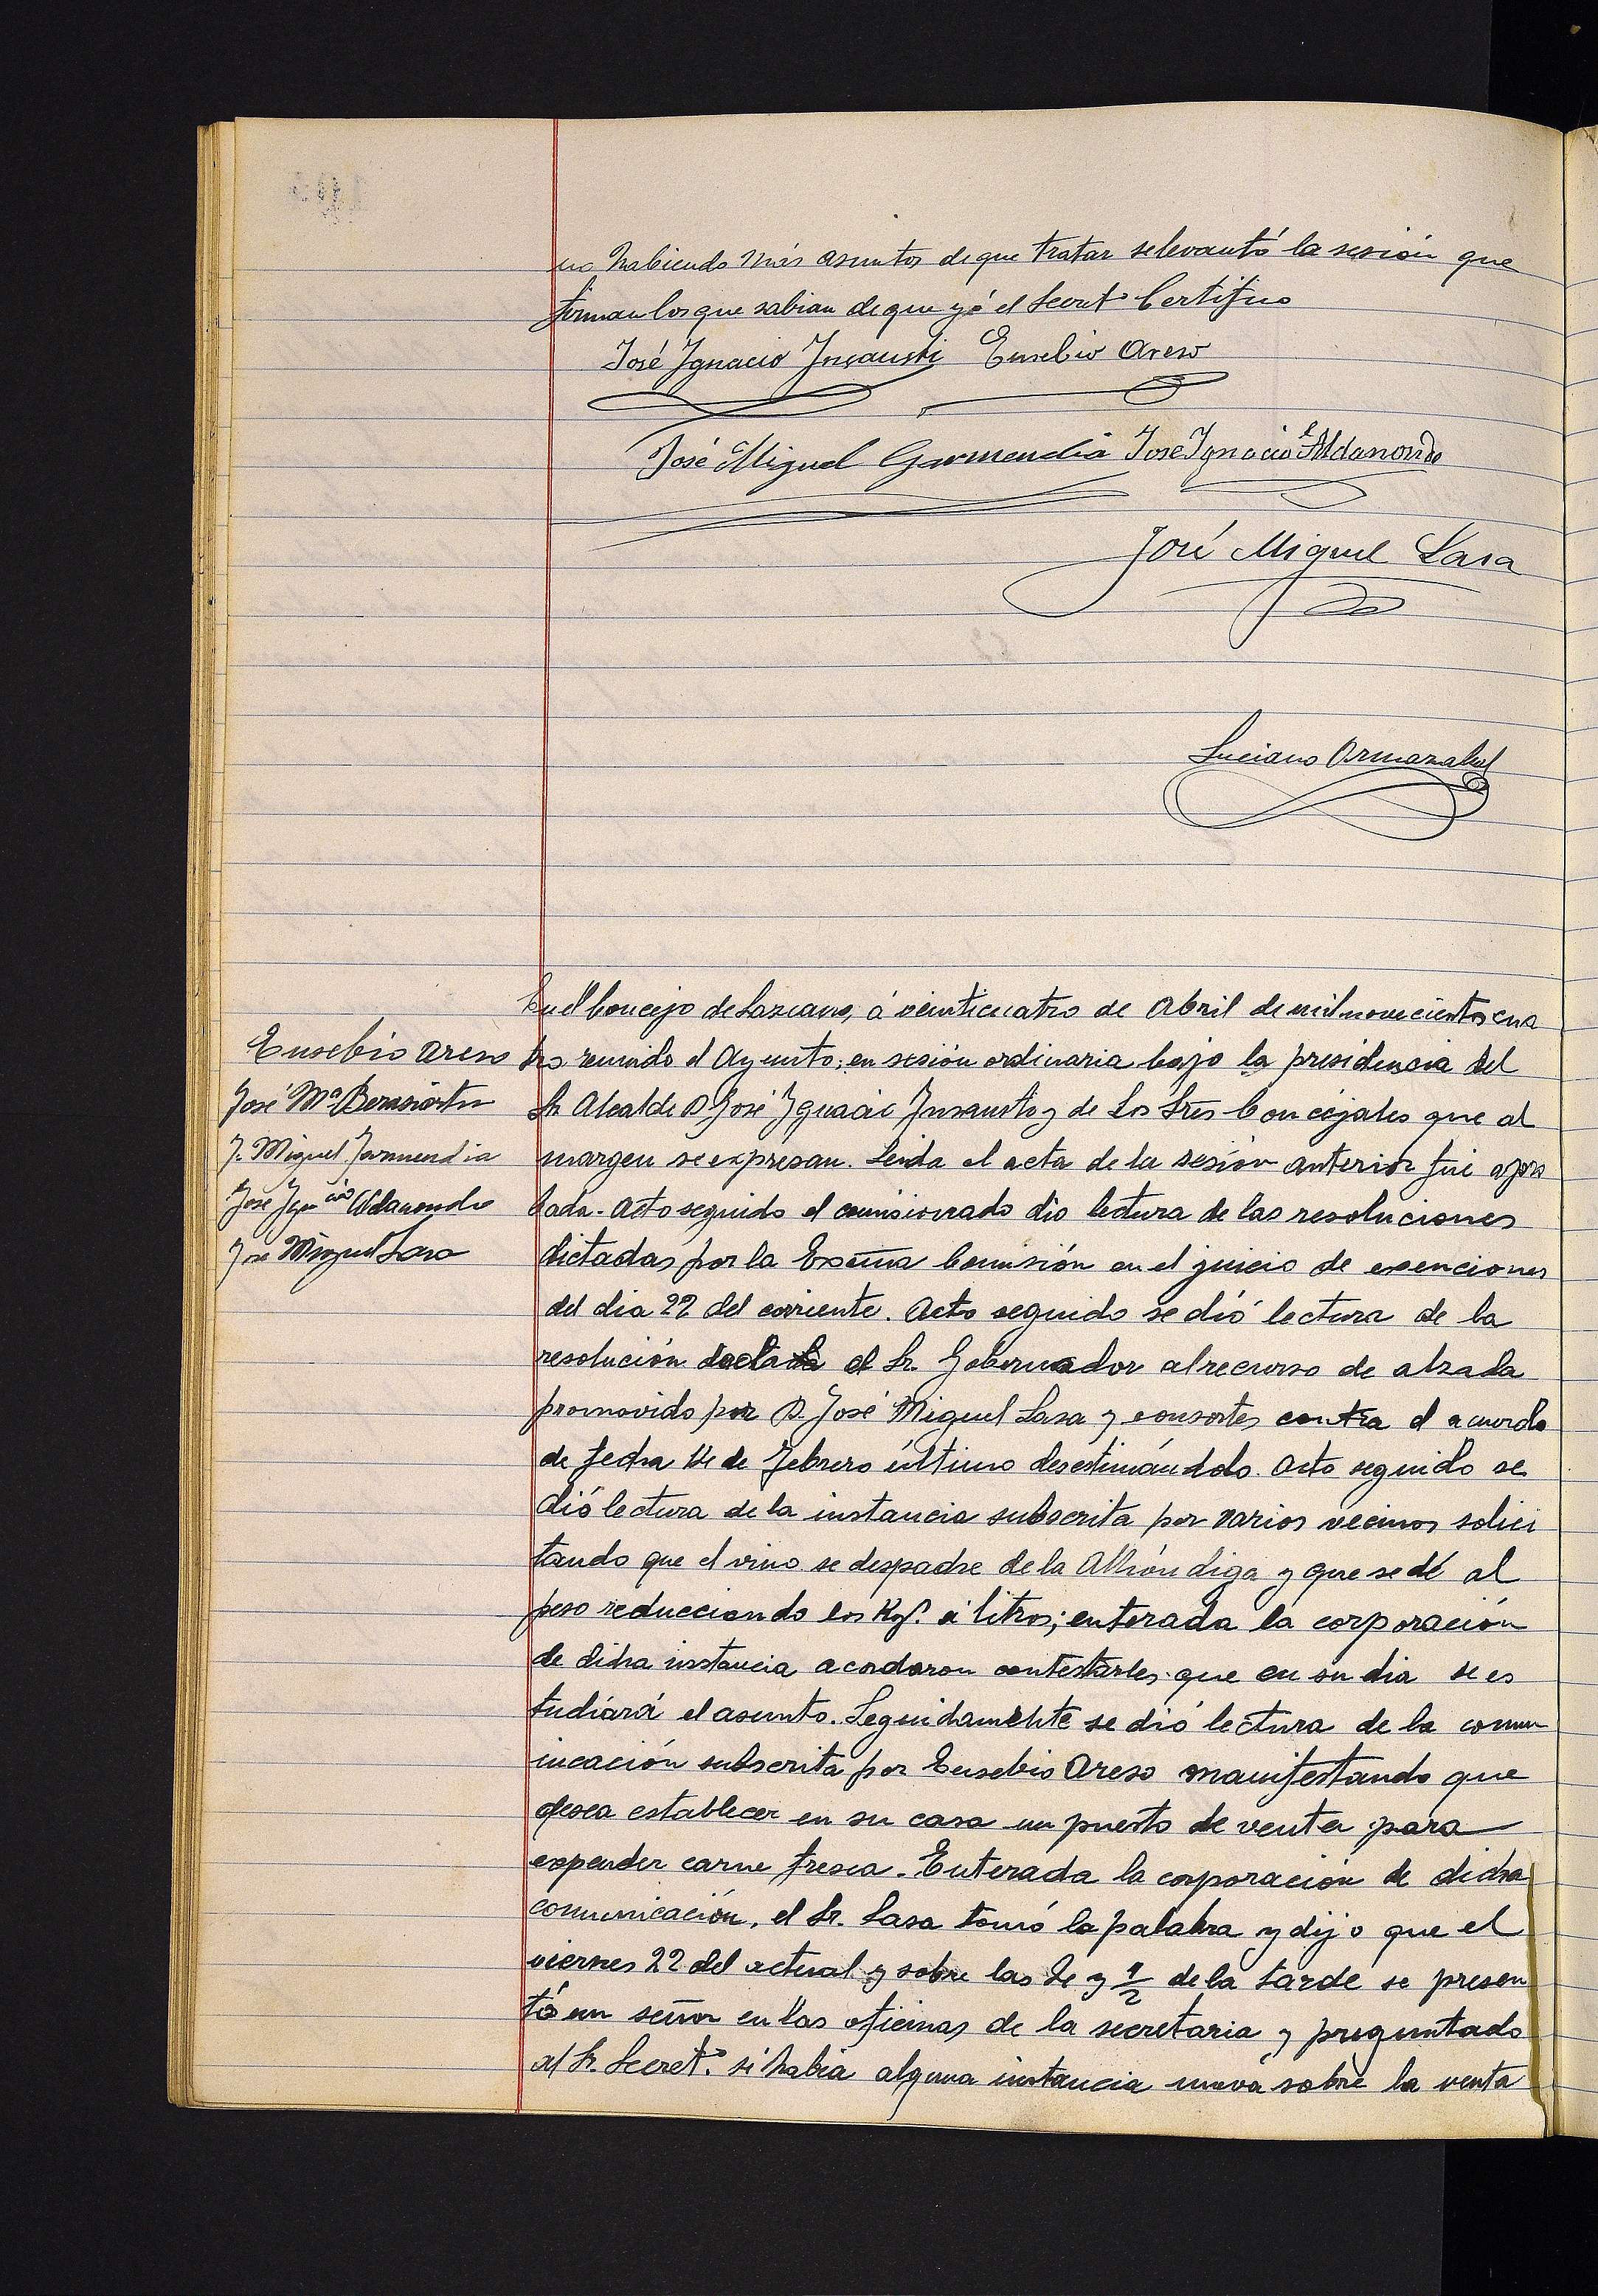 no habiendo más asuntos de que tratar se levantó la sesión que
firman los que sabian de que yó el Secret.º Certifico
José Ygnacio Ynsausti Eusebio Areso
José Miguel Garmendia José Ygnacio Aldanondo
José Miguel Lasa
Luciano Ormazabal
En el Concejo de Lazcano, á veinticuatro de Abril de mil novecientos cua
tro reunido el Ayunto; en sesión ordinaria bajo la presidencia del
Sr. Alcalde D José Ygnacio Ynsausti y de los Sres Concejales que al
margen se expresan. Leida el acta de la sesión anterior fué apro
bada. Acto seguido el comisionado dio lectura de las resoluciones
dictadas por la Excma Comisión en el juicio de exenciones
del dia 22 del corriente. Acto seguido se dió lectura de la
resolución el Sr. Gobernador al recurso de alzada
promovido por D. José Miguel Lasa y consortes contra el acuerdo
de fecha 14 de Febrero último desestimándolo. Acto seguido se
dió lectura de la instancia subscrita por varios vecinos solici
tando que el vino se despache de la Alhóndiga y que se dé al
peso reducciendo los Kgs. á litros; enterada la corporación
de dicha instancia acordaron contestarles que en su dia se es
tudiará el asunto. Seguidamente se dió lectura de la comu
nicación subscrita por Eusebio Areso manifestando que
desea establecer en su casa un puesto de venta para
expender carne fresca. Enterada la corporación de dicha
comunicación, el Sr. Lasa tomó la palabra y dijo que el
viernes 22 del actual y sobre las y 1/2 de la tarde se presen
tó un señor en las oficinas de la secretaria y preguntado
al Sr. Secret.º si habia alguna instancia nueva sobre la venta
Eusebio Areso
José Mª
J. Miguel Garmendia
José Ygnacio Aldanondo
José Miguel Lasa